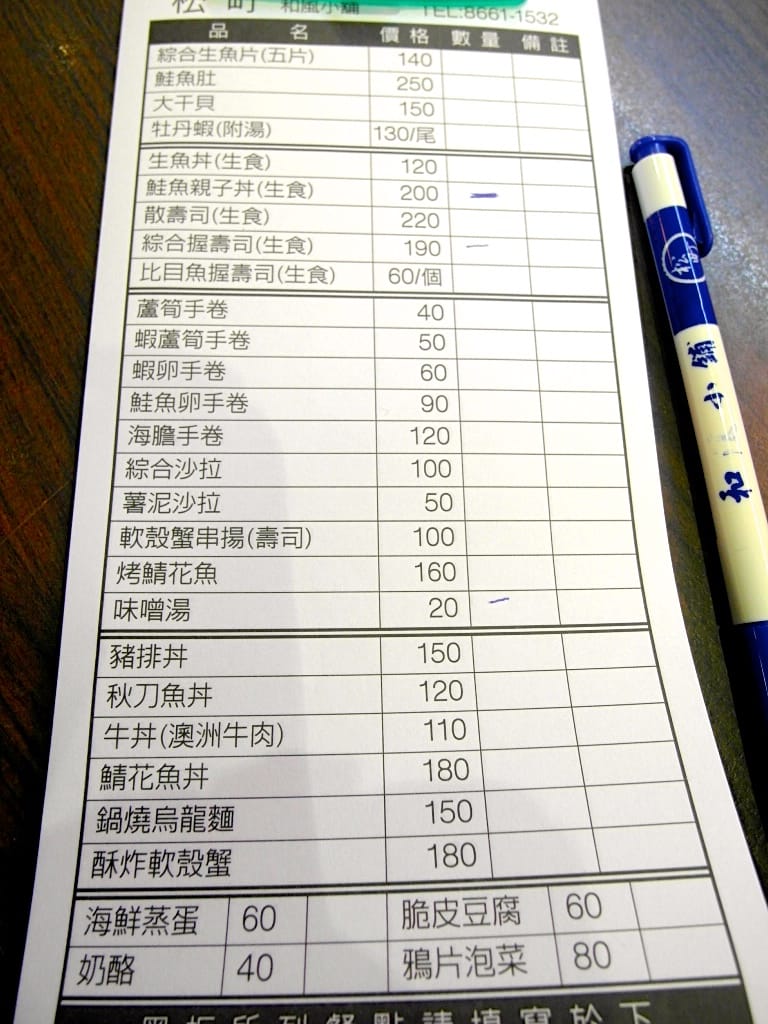 松町 和風小舖 TEL:8661-1532
品名 價格 數量 備註
綜合生魚片(五片) 140
鮭魚肚 250
大干貝 150
牡丹蝦(附湯) 130/尾
生魚丼(生食) 120
鮭魚親子丼(生食) 200 一
散壽司(生食) 220
綜合握壽司(生食) 190 一
比目魚握壽司(生食) 60/個
蘆筍手卷 40
蝦蘆筍手卷 50
蝦卵手卷 60
鮭魚卵手卷 90
海膽手卷 120
綜合沙拉 100
薯泥沙拉 50
軟殼蟹串揚(壽司) 100
烤鯖花魚 160
味噌湯 20 一
豬排丼 150
秋刀魚丼 120
牛丼(澳洲牛肉) 110
鯖花魚丼 180
鍋燒烏龍麵 150
酥炸軟殼蟹 180
海鮮蒸蛋 60 脆皮豆腐 60
奶酪 40 鴉片泡菜 80
松町
和 小舖